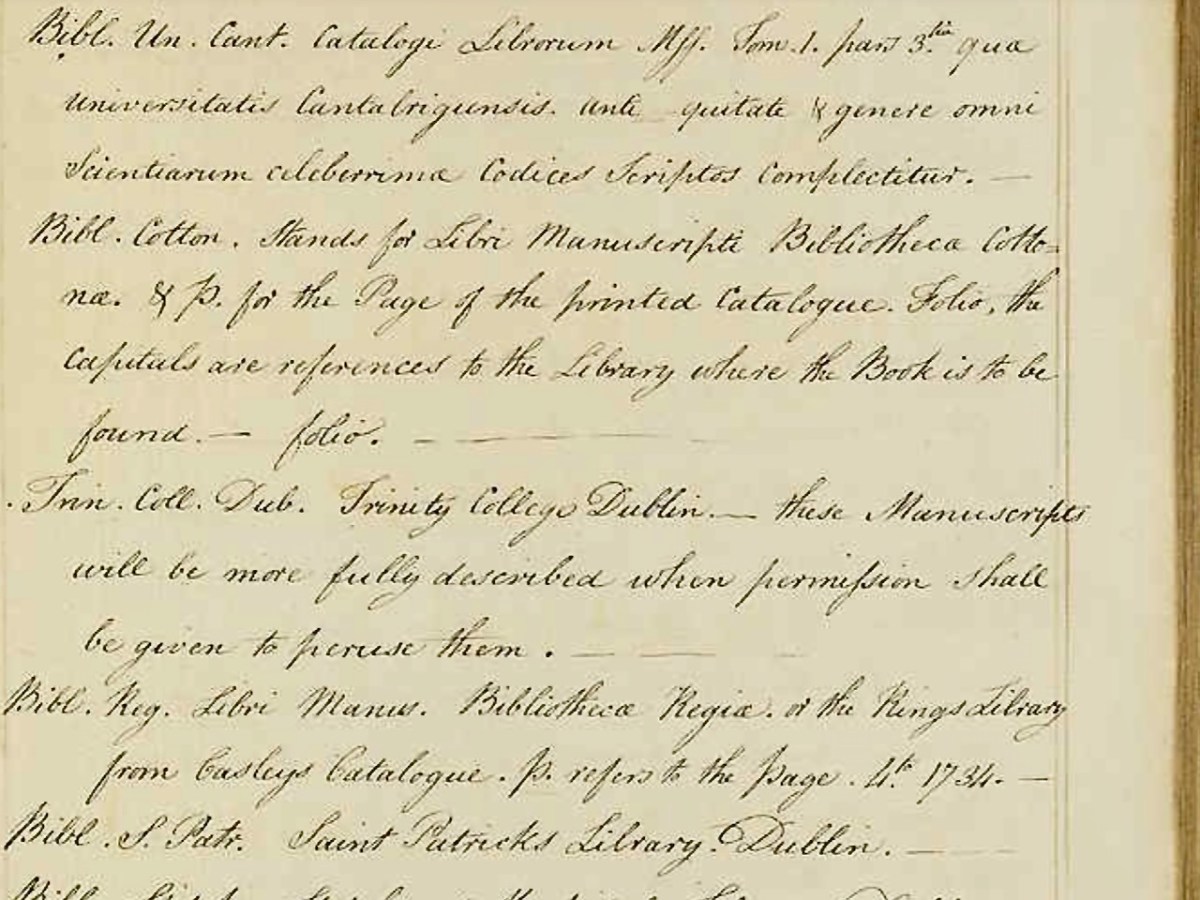 Bibl. Un. Cant. Catalogi Librorum Mſſ. Tom. 1. pars 3.tia quæ
Universitatis Cantabrigiensis. ante quitate & genere omni
Scientiarum celeberrimæ Codices Scriptos Complectitur. —
Bibl. Cotton. Stands for Libri Manuscripti Bibliothecæ Cotto=
næ. & P. for the Page of the printed Catalogue. Folio, the
Capitals are references to the Library where the Book is to be
found. — folio. — — — —
Trin. Coll. Dub. Trinity College Dublin. — these Manuscripts
will be more fully described when permiſsion shall
be given to peruse them. — — —
Bibl. Reg. Libri Manus. Bibliothecæ Regiæ. or the Kings Library
from Casleys Catalogue. p. refers to the page. 4.to 1734. —
Bibl. S. Patr. Saint Patricks Library. Dublin. — —